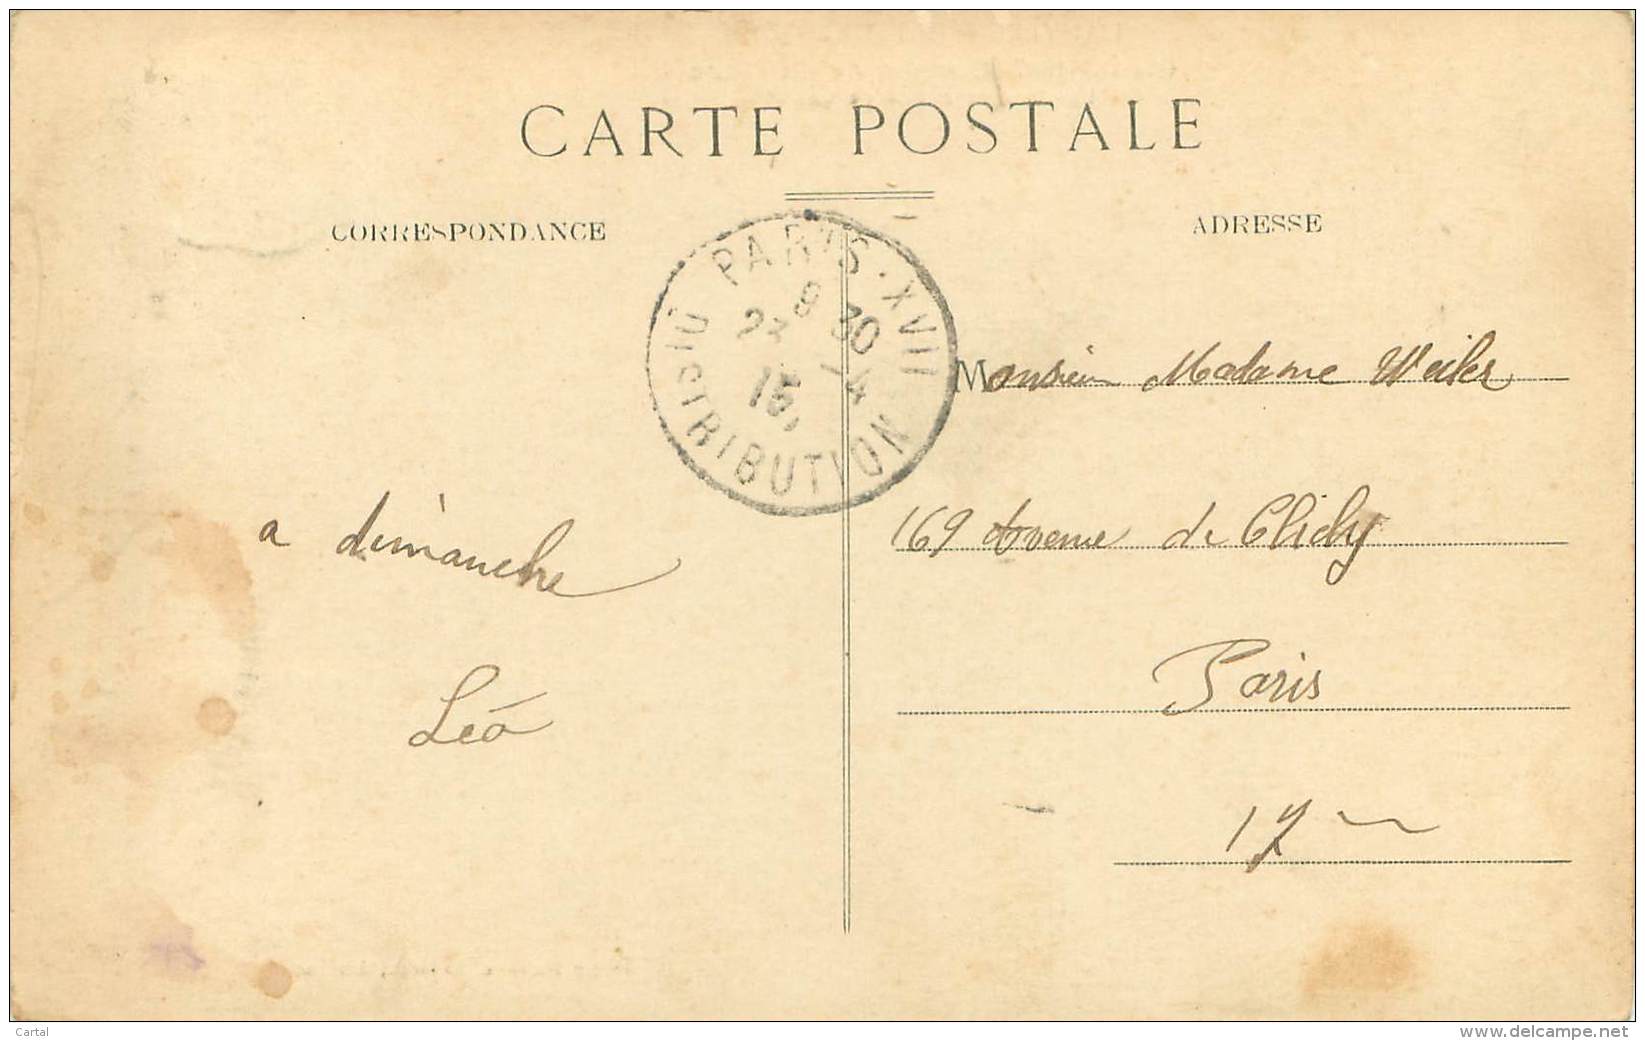 CARTE POSTALE
CORRESPONDANCE
ADRESSE
PARIS·XVII
8 30
23 -4
15
DISTRIBUTION
Monsieur Madame Weiler
169 Avenue de Clichy
Paris
17
a dimanche
Léo
Cartal
www.delcampe.net